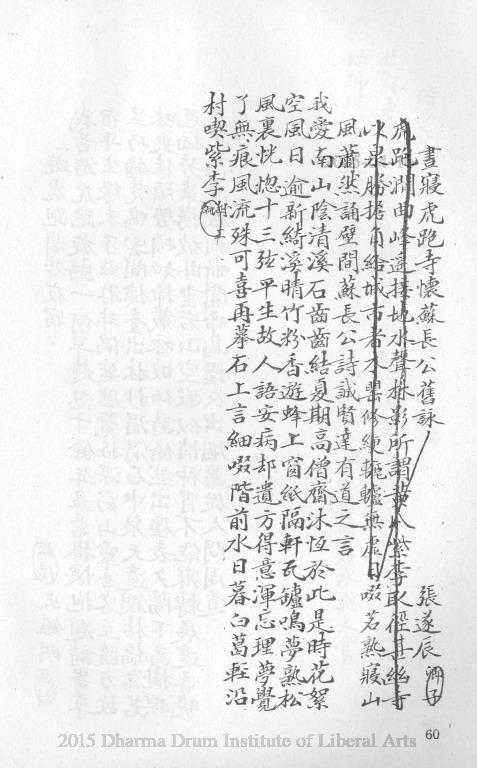 晝寢虎跑寺懷蘇長公舊詠 張遂辰 卿子
虎跑澗曲峰遥接地水聲林影所謂黃瓜紫李取徑甚幽寺
以泉勝擔負給城市者不罌修綆轆轤無虛日啜茗熟寢山
風蕭然誦壁間蘇長公詩誠賢達有道之言
我愛南山陰清溪石齒齒結夏期高僧齋沐恆於此是時花絮
空風日逾新綺溪晴竹粉香遊蜂上窗紙隔軒瓦鑪鳴夢熟松
風裏恍惚十三弦平生故人語安病却遺方得意渾忘理夢覺
了無痕風流殊可喜再摹石上言細啜階前水日暮白葛輕沿
村喫紫李
60
2015 Dharma Drum Institute of Liberal Arts